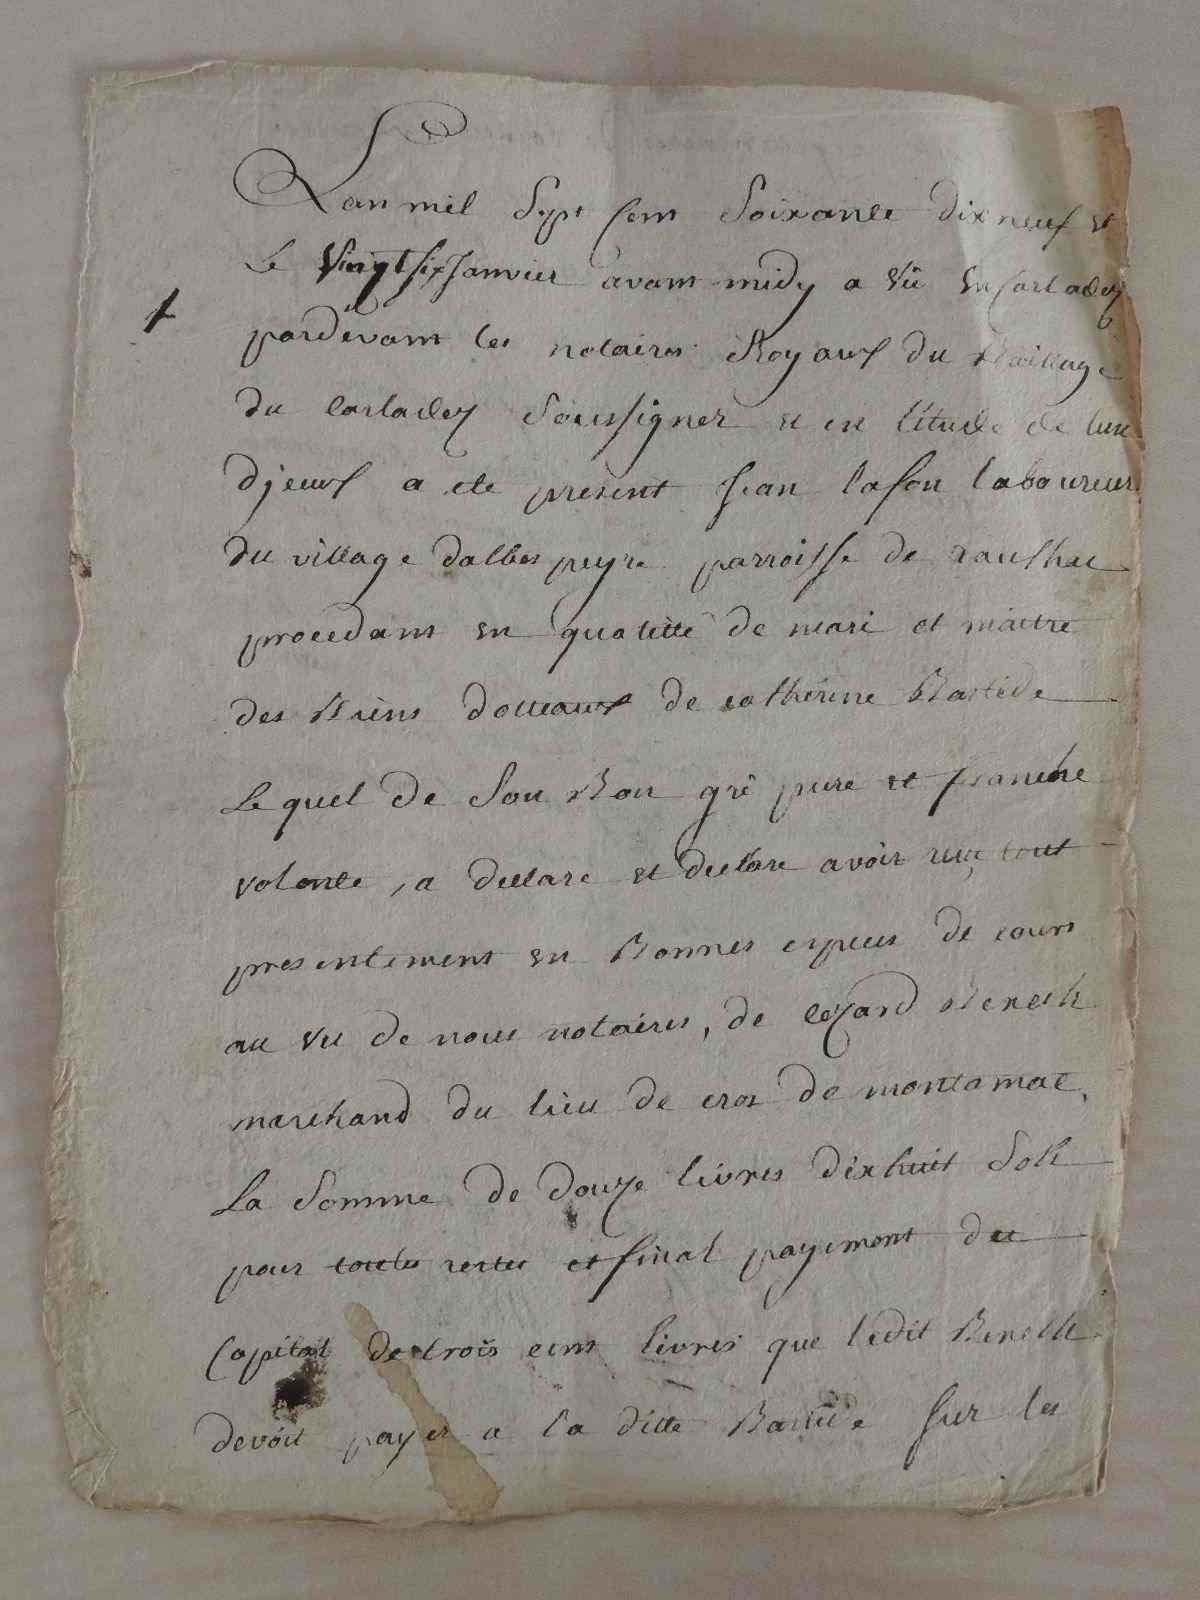 Lan mil Sept Cent Soixante dix neuf et
Le Vingt six Janvier avant midy a Vic En Carladez
pardevant les notaires Royaux du Bailliage
du Carladez Soussignez et en l'étude de lun
djeux a ete present Jean lafon laboureur
du village dalbespeyre parroisse de raulhac
procedant en qualitté de mari et maitre
des Biens dotteaux de catherine Bastide
Le quel de Son Bon gré pure et franche
volonte, a declare et declare avoir reçu tout
presentement en Bonnes especes de cours
au vu de nous notaires, de Benech
marchand du lieu de cros de montamat,
La Somme de douze livres dixhuit Sols
pour toutes restes et final payement du
Capital de trois cens livres que ledit Benech
devoit payer a la ditte Bastide sur les